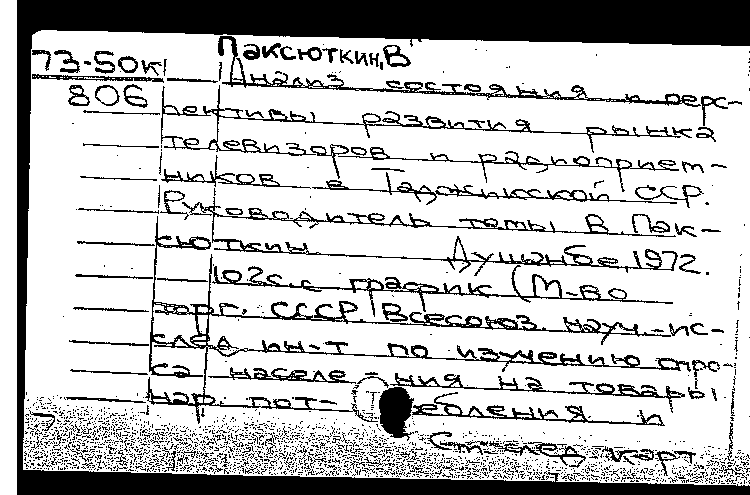 Паксюткин, В
73-50к
Анализ состояния и перс-
806
пективы развития рынка
телевизоров и радиоприем-
ников в Таджикской ССР.
Руководитель темы В. Пак-
сюткин Душанбе, 1972.
102с. с график (М-во
торг. СССР. Всесоюз. науч.-ис-
след ин-т по изучению спро-
са населе-ния на товары
нар. пот-ребления и
См след карт